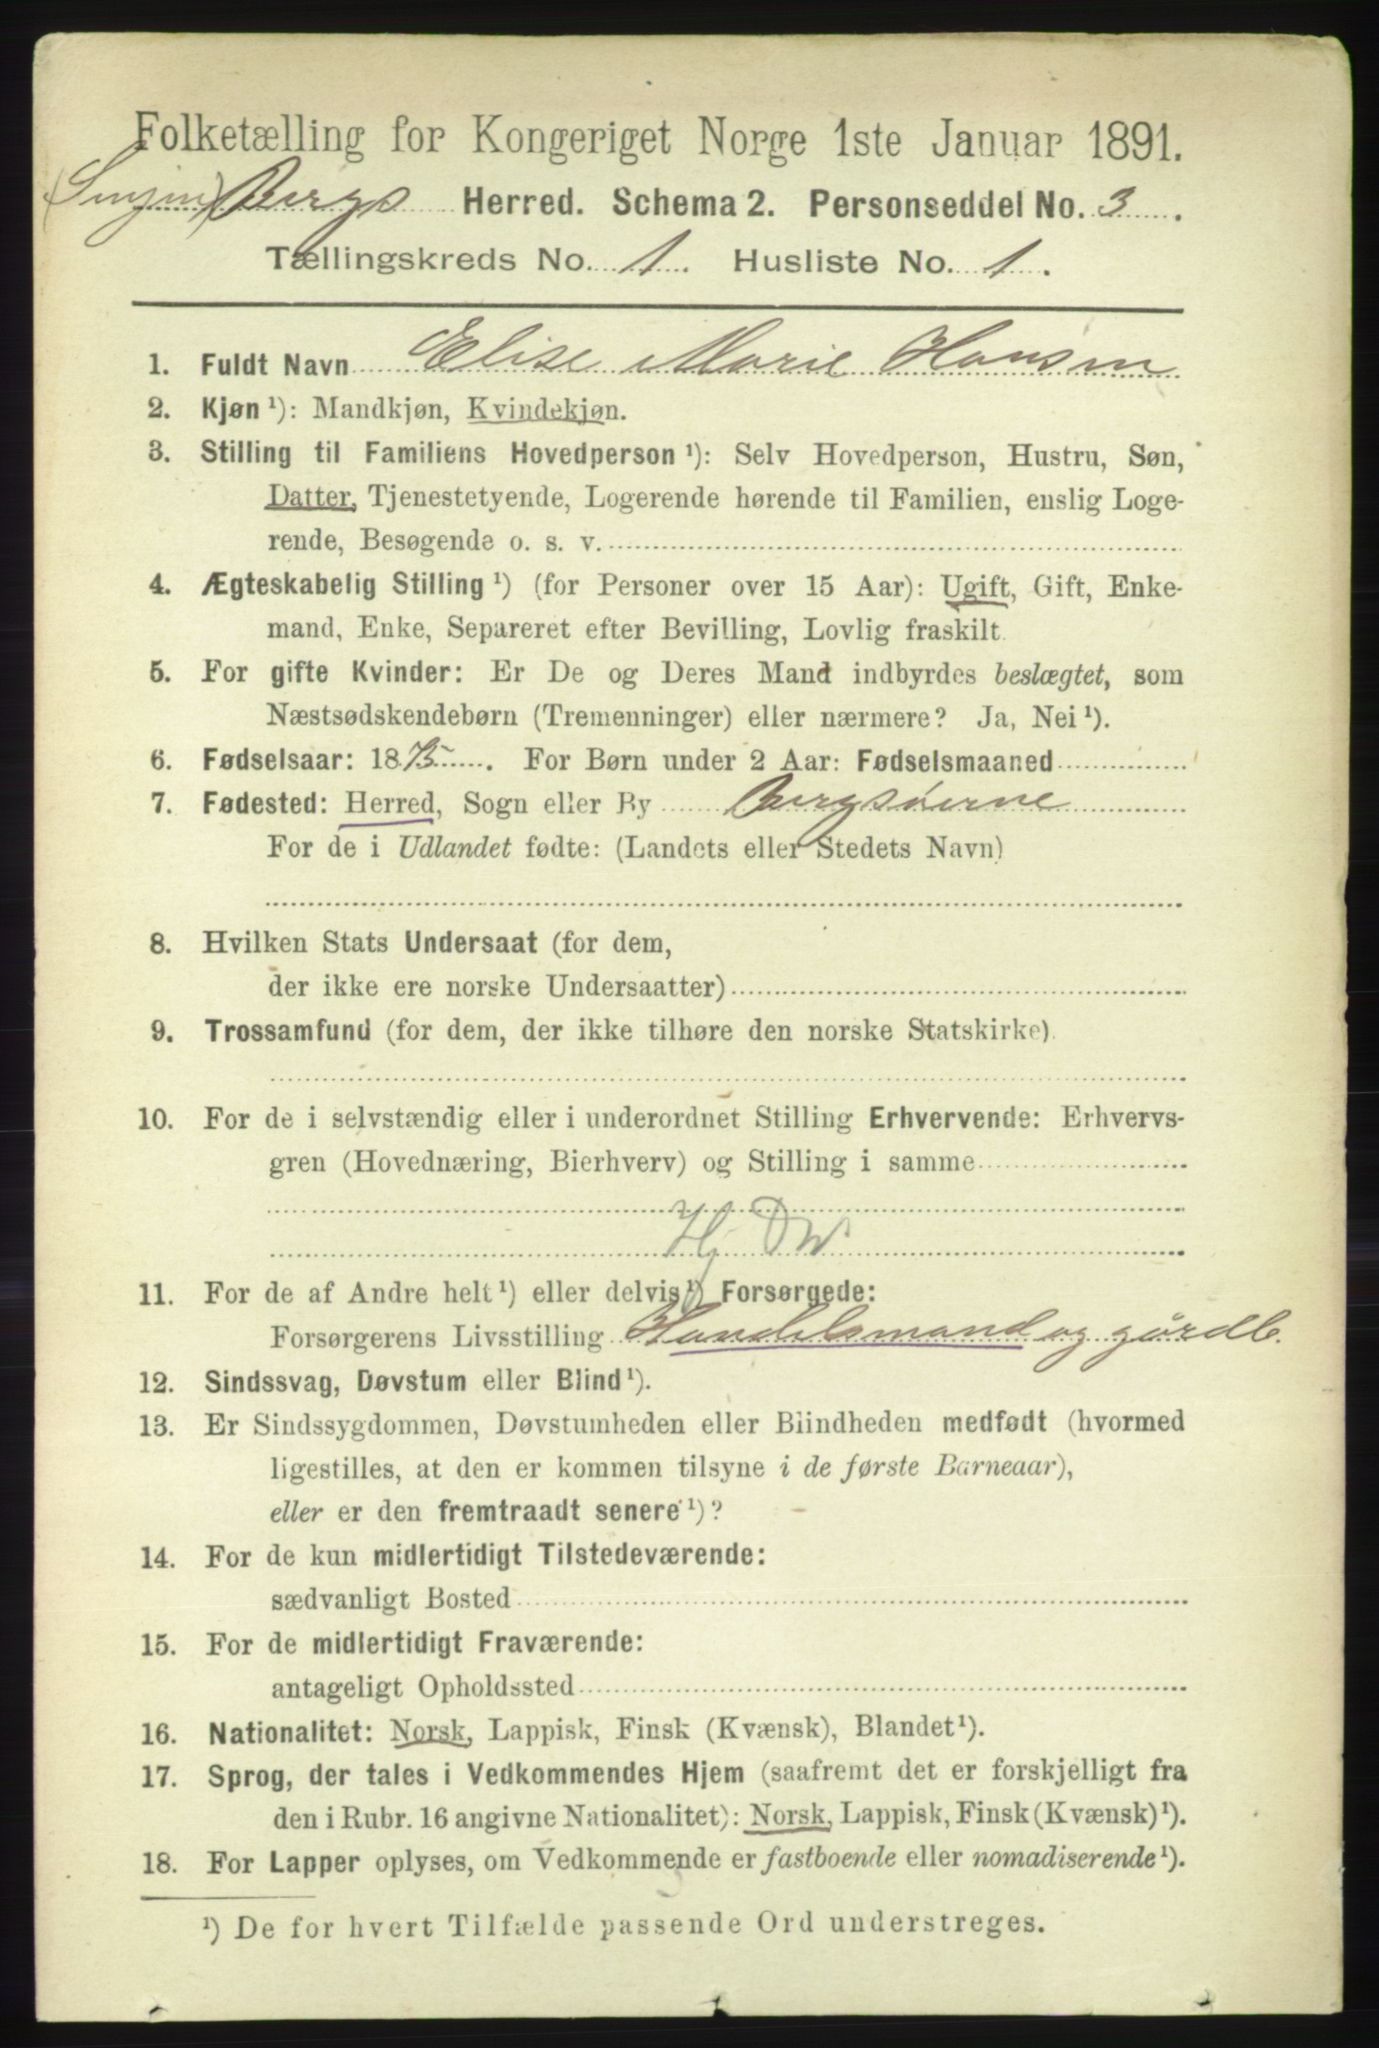 Folketælling for Kongeriget Norge 1ste Januar 1891.
Bergs Herred. Schema 2. Personseddel No. 3.
Tællingskreds No. 1. Husliste No. 1.
1. Fuldt Navn Elise Marie Hansen
2. Kjøn ¹): Mandkjøn, Kvindekjøn.
3. Stilling til Familiens Hovedperson ¹): Selv Hovedperson, Hustru, Søn,
Datter, Tjenestetyende, Logerende hørende til Familien, enslig Loge-
rende, Besøgende o. s. v.
4. Ægteskabelig Stilling ¹) (for Personer over 15 Aar): Ugift, Gift, Enke-
mand, Enke, Separeret efter Bevilling, Lovlig fraskilt
5. For gifte Kvinder: Er De og Deres Mand indbyrdes beslægtet, som
Næstsødskendebørn (Tremenninger) eller nærmere? Ja, Nei ¹).
6. Fødselsaar: 1875. For Børn under 2 Aar: Fødselsmaaned
7. Fødested: Herred, Sogn eller By Bergsøerne
For de i Udlandet fødte: (Landets eller Stedets Navn)
8. Hvilken Stats Undersaat (for dem,
der ikke ere norske Undersaatter)
9. Trossamfund (for dem, der ikke tilhøre den norske Statskirke)
10. For de i selvstændig eller i underordnet Stilling Erhvervende: Erhvervs-
gren (Hovednæring, Bierhverv) og Stilling i samme
11. For de af Andre helt ¹) eller delvis ¹) Forsørgede:
Forsørgerens Livsstilling Handelsmand og gårdb.
12. Sindssvag, Døvstum eller Blind ¹).
13. Er Sindssygdommen, Døvstumheden eller Blindheden medfødt (hvormed
ligestilles, at den er kommen tilsyne i de første Barneaar),
eller er den fremtraadt senere ¹)?
14. For de kun midlertidigt Tilstedeværende:
sædvanligt Bosted
15. For de midlertidigt Fraværende:
antageligt Opholdssted
16. Nationalitet: Norsk, Lappisk, Finsk (Kvænsk), Blandet ¹).
17. Sprog, der tales i Vedkommendes Hjem (saafremt det er forskjelligt fra
den i Rubr. 16 angivne Nationalitet): Norsk, Lappisk, Finsk (Kvænsk) ¹).
18. For Lapper oplyses, om Vedkommende er fastboende eller nomadiserende ¹).
¹) De for hvert Tilfælde passende Ord understreges.